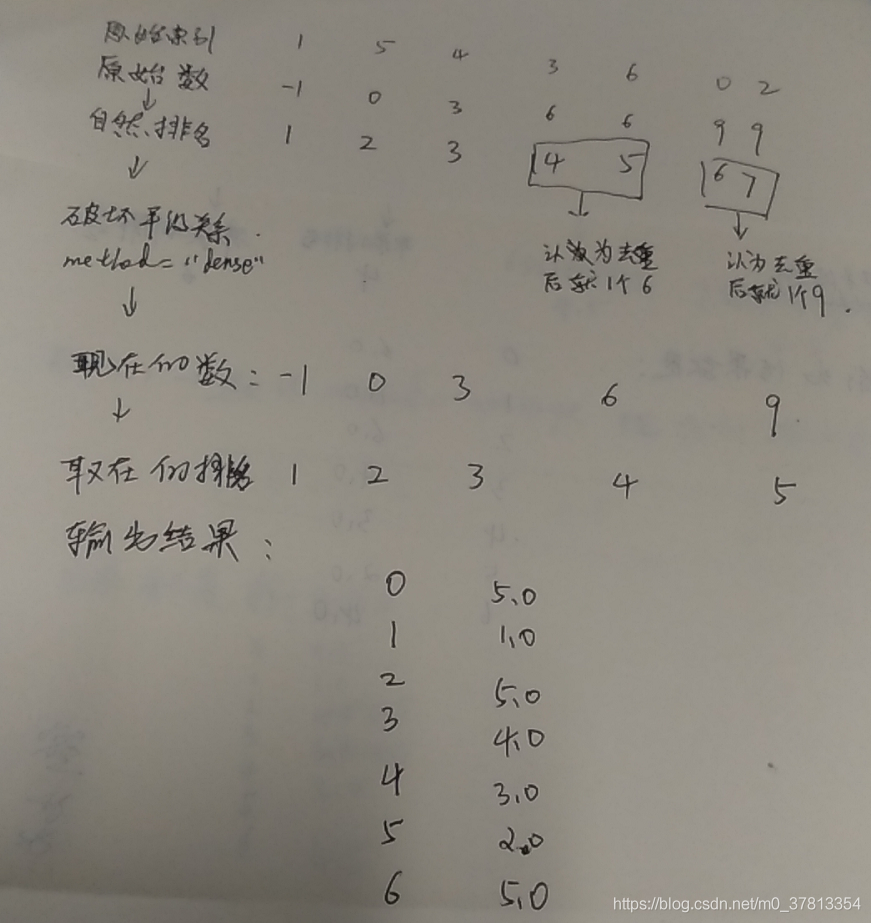 原始索引 1 5 4 3 6 0 2
原始数 -1 0 3 6 6 9 9
↓
自然排名 1 2 3 4 5 6 7
↓
破坏平级关系.
method="dense"
认为去重
后就1个6
认为去重
后就1个9.
↓
现在的数: -1 0 3 6 9
↓
现在的排名 1 2 3 4 5
输出结果:
0 5.0
1 1.0
2 5.0
3 4.0
4 3.0
5 2.0
6 5.0
https://blog.csdn.net/m0_37813354